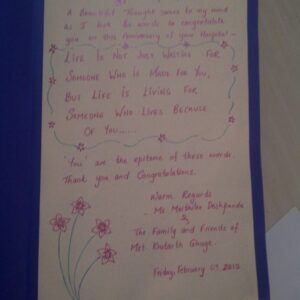 A Beautiful Thought comes to my mind
as I look for words to congratulate
you on this Anniversary of your Hospital -
Life Is Not Just Waiting For
Someone Who Is Made For You,
But Life Is Living For
Someone Who Lives Because
Of You......
You are the epitome of these words.
Thank you and Congratulations.
Warm Regards
Deshpande
&
The Family and Friends of
Ghuge
Friday, February